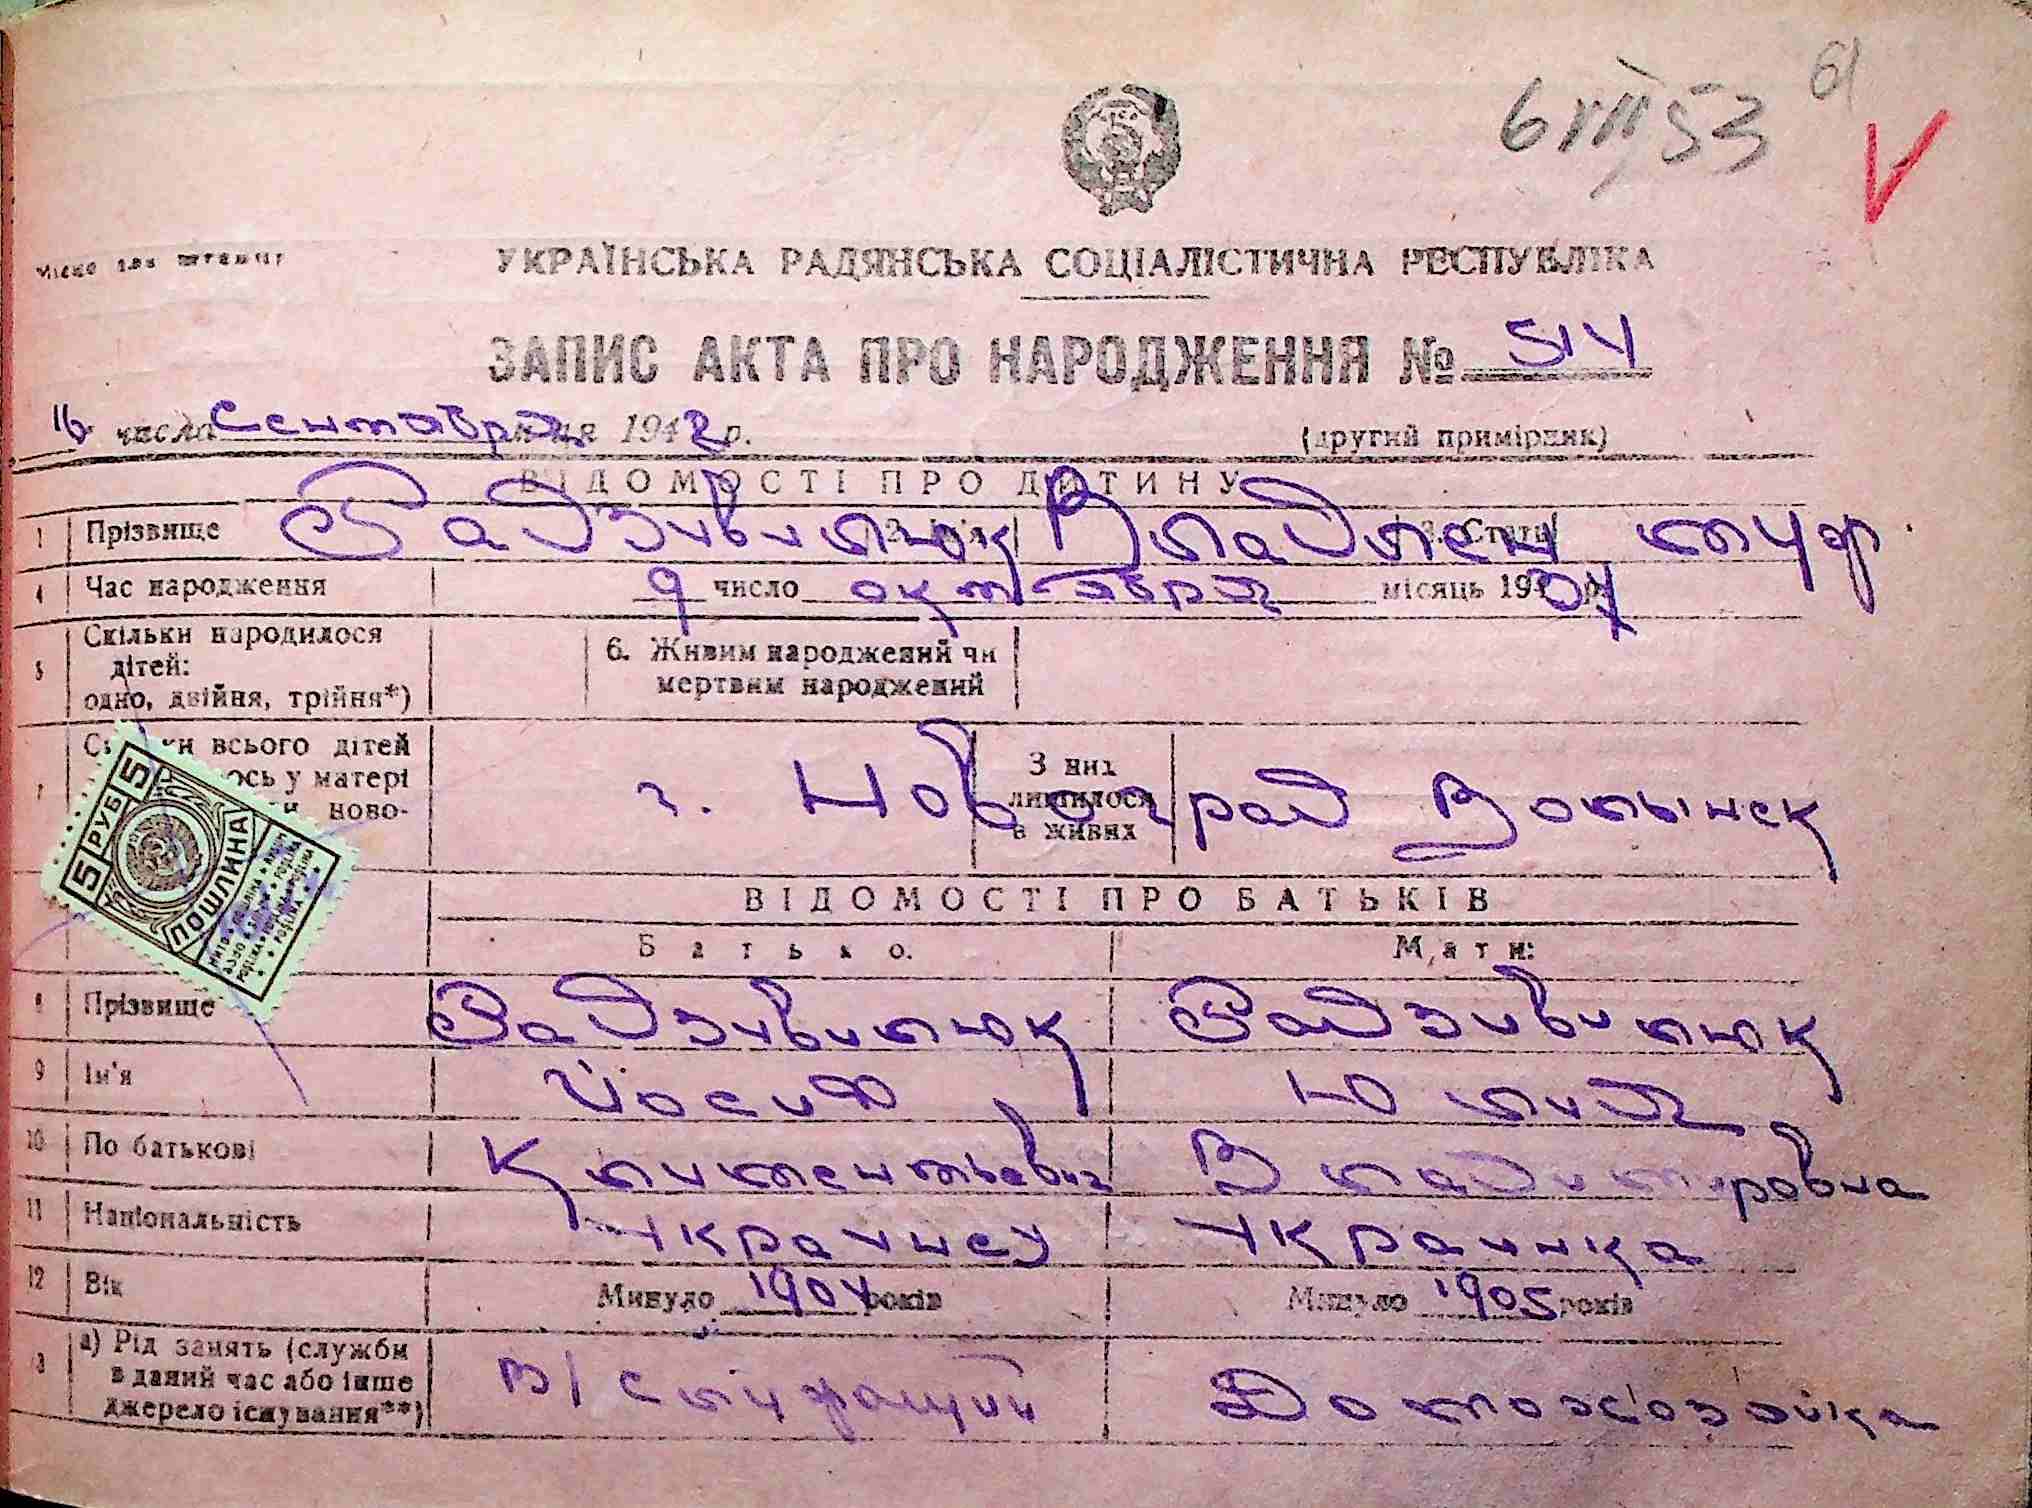 61
6 VIII 53
V
Місце для штампу
УКРАЇНСЬКА РАДЯНСЬКА СОЦІАЛІСТИЧНА РЕСПУБЛІКА
ЗАПИС АКТА ПРО НАРОДЖЕННЯ № 514
16 числа сентября місяця 1942 р.
(другий примірник)
ВІДОМОСТІ ПРО ДИТИНУ
1 Прізвище Радзивилюк 2. Ім'я Владлен 3. Стать муж.
4 Час народження 9 число октября місяць 1937 р.
5 Скільки народилося дітей: одно, двійня, трійня*)
6. Живим народжений чи мертвим народжений
7 всього дітей
ось у матері
ново-
г. Новоград Волынск
З них лишилося в живих
5 РУБ 5
ПОШЛИНА
ВІДОМОСТІ ПРО БАТЬКІВ
Батько: Мати:
8 Прізвище Радзивилюк Радзивилюк
9 Ім'я Йосиф Юлия
10 По батькові Климентьевич Владимировна
11 Національність Украинец Украинка
12 Вік Минуло 1904 років Минуло 1905 років
13 а) Рід занять (служби в даний час або інше джерело існування**) В/служащий Домохозяйка